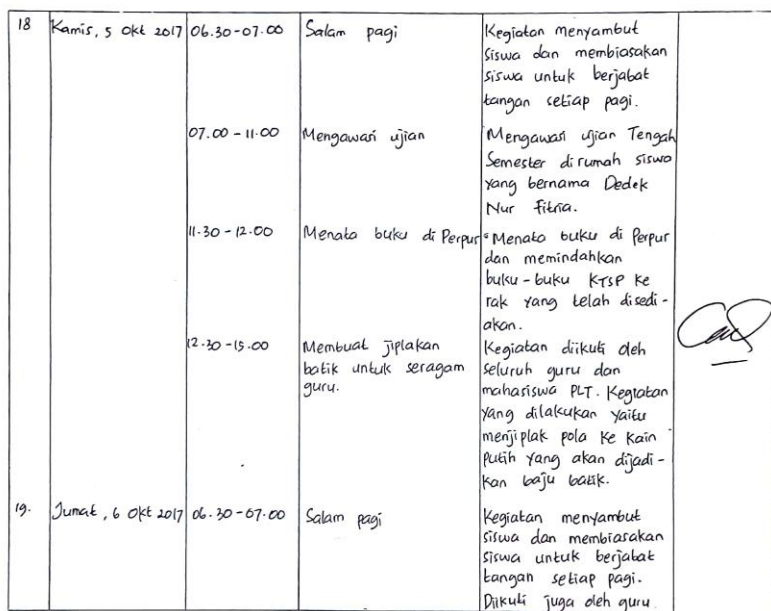 18 Kamis, 5 Okt 2017 06.30-07.00 Salam pagi Kegiatan menyambut
siswa dan membiasakan
siswa untuk berjabat
tangan setiap pagi.
07.00 - 11.00 Mengawasi ujian Mengawasi ujian Tengah
Semester dirumah siswa
yang bernama Dedek
Nur Fitria.
11.30 - 12.00 Menata buku di Perpur Menata buku di Perpur
dan memindahkan
buku-buku KTSP ke
rak yang telah disedi-
akan.
12.30-15.00 Membuat jiplakan Kegiatan diikuti oleh
batik untuk seragam seluruh guru dan
guru. mahasiswa PLT. Kegiatan
yang dilakukan yaitu
menjiplak pola ke kain
putih yang akan dijadi-
kan baju batik.
19. Jumat, 6 Okt 2017 06.30-07.00 Salam pagi Kegiatan menyambut
siswa dan membiasakan
siswa untuk berjabat
tangan setiap pagi.
Diikuti juga oleh guru.